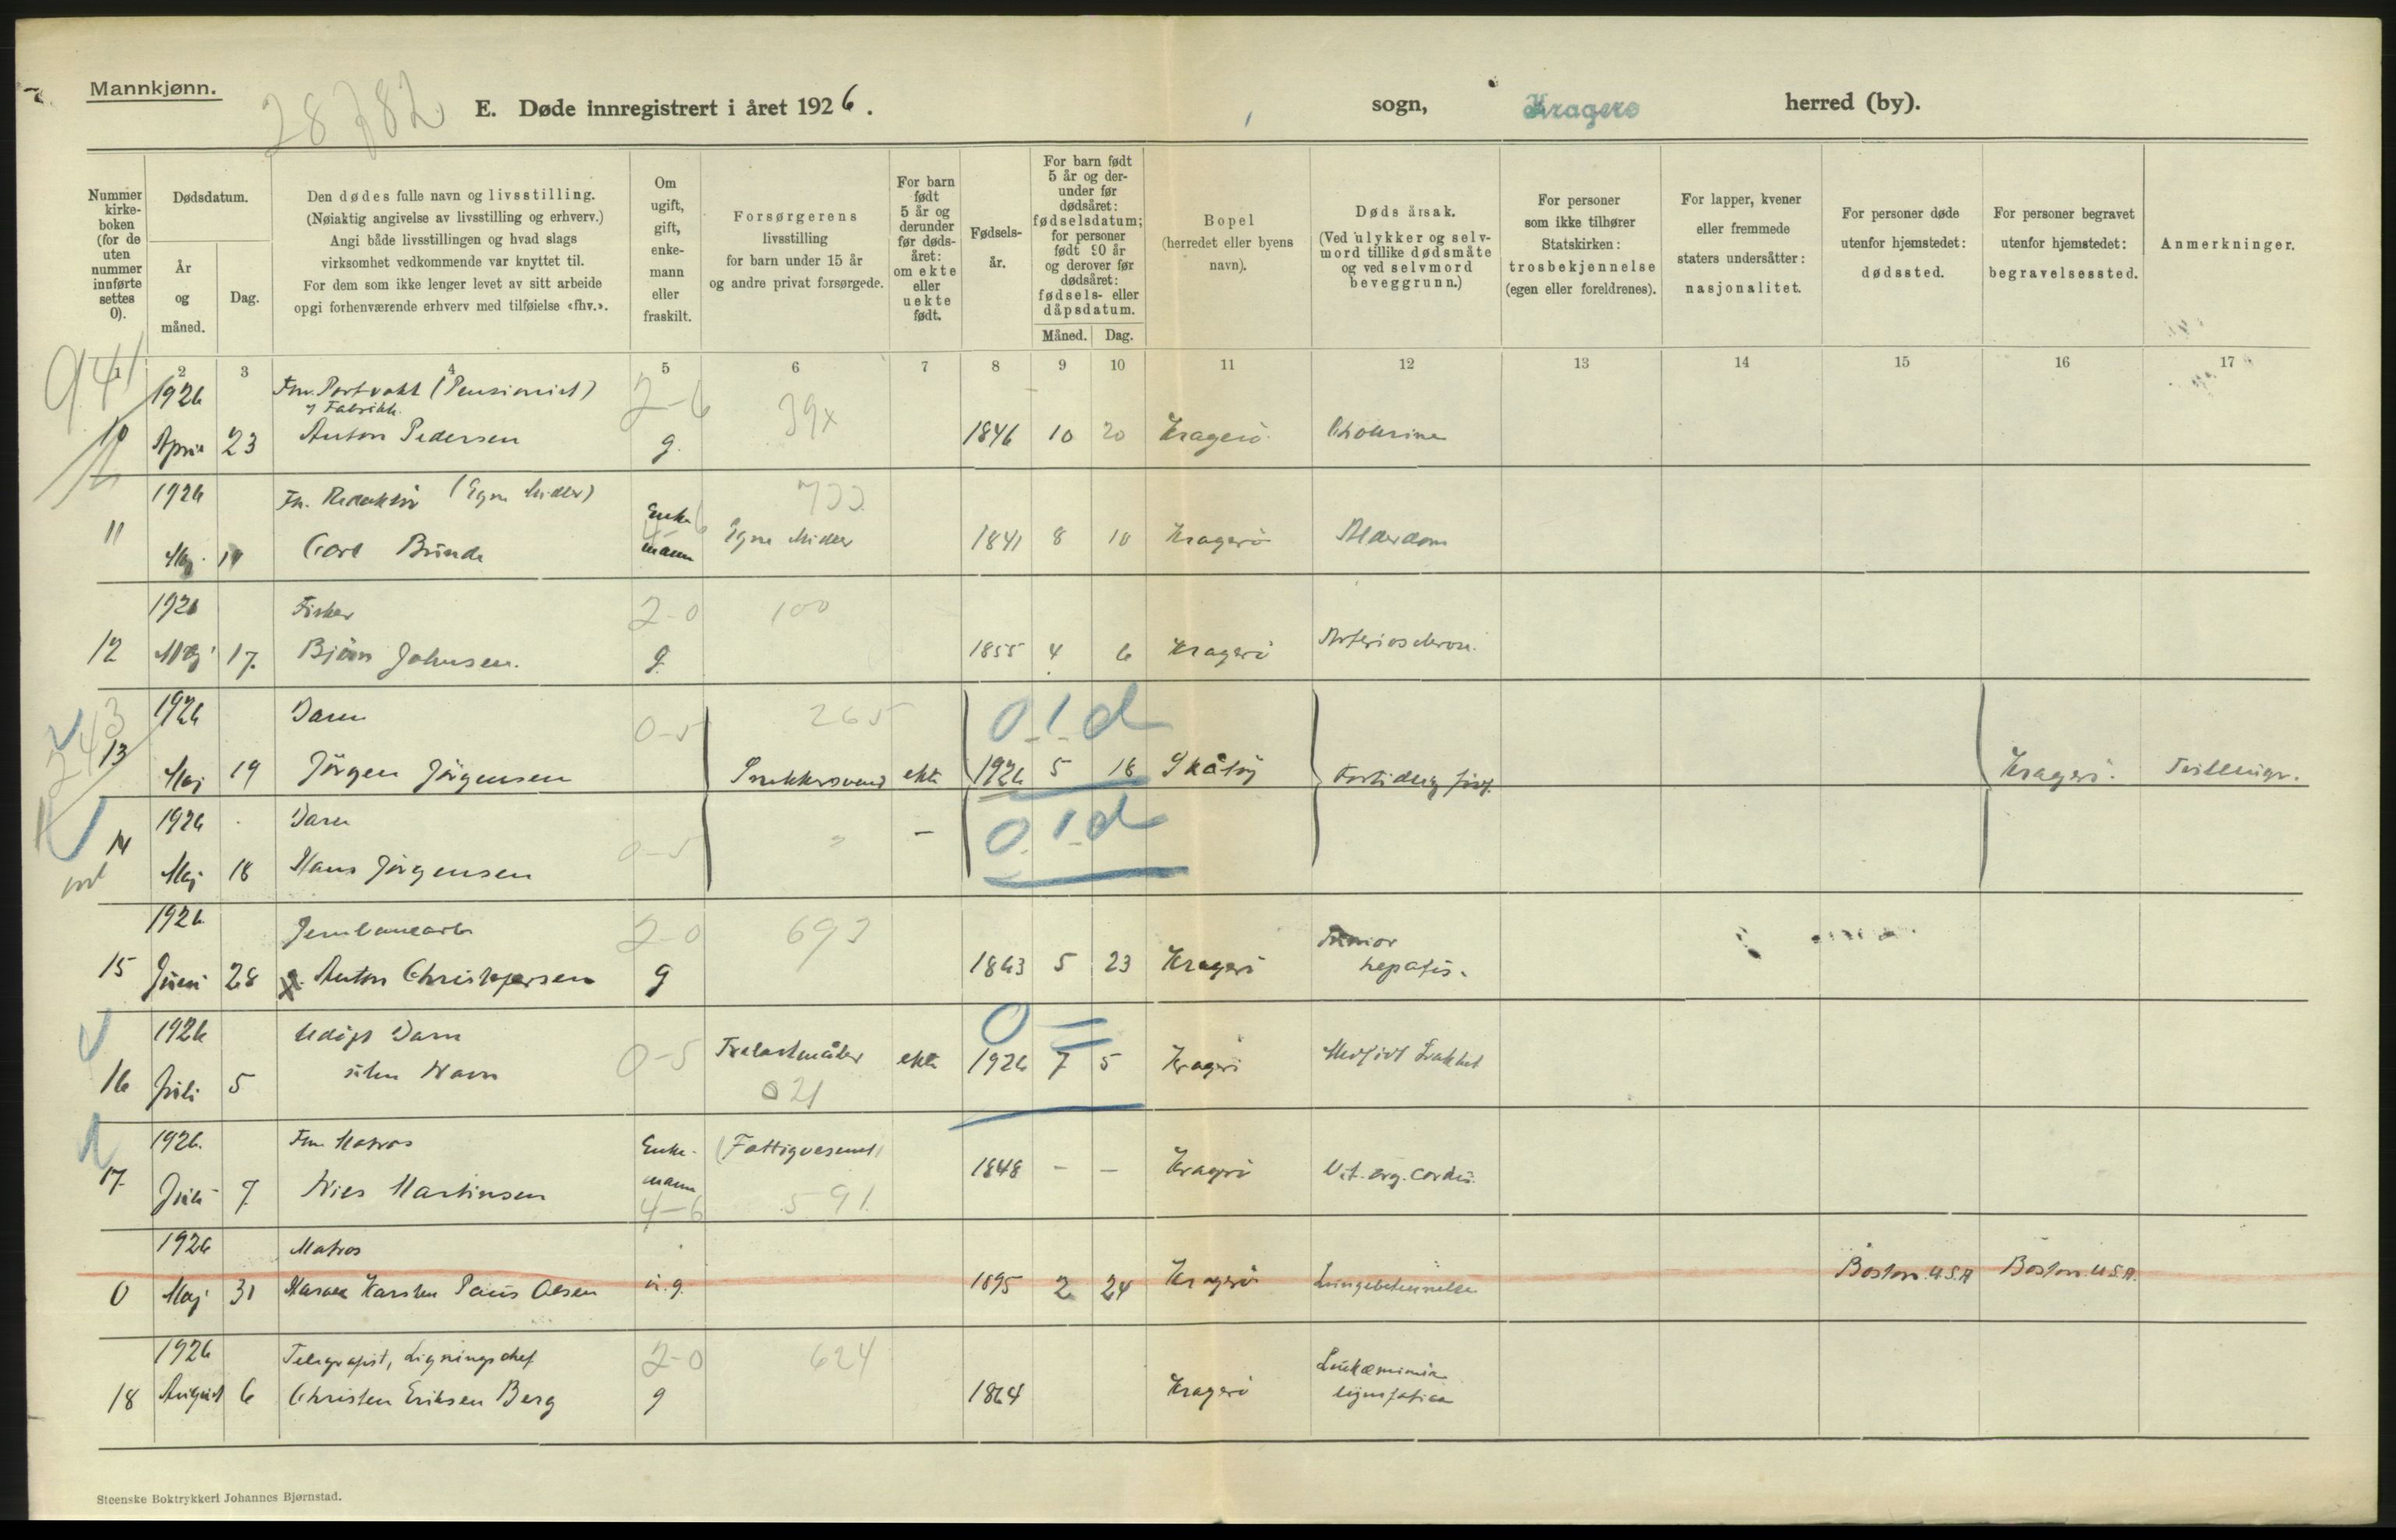 Mannkjønn.
28782
E. Døde innregistrert i året 1926.
sogn,
Kragerø
herred (by).
Nummer
kirke-
boken
(for de
uten
nummer
innførte
settes
0).
Dødsdatum.
År
og
måned.
Dag.
Den dødes fulle navn og livsstilling.
(Nøiaktig angivelse av livsstilling og erhverv.)
Angi både livsstillingen og hvad slags
virksomhet vedkommende var knyttet til.
For dem som ikke lenger levet av sitt arbeide
opgi forhenværende erhverv med tilføielse «fhv.».
Om
ugift,
gift,
enke-
mann
eller
fraskilt.
Forsørgerens
livsstilling
for barn under 15 år
og andre privat forsørgede.
For barn
født
5 år og
derunder
før døds-
året:
om ekte
eller
uekte
født.
Fødsels-
år.
For barn født
5 år og der-
under før
dødsåret:
fødselsdatum;
for personer
født 90 år
og derover før
dødsåret:
fødsels- eller
dåpsdatum.
Måned.
Dag.
Bopel
(herredet eller byens
navn).
Døds årsak.
(Ved ulykker og selv-
mord tillike dødsmåte
og ved selvmord
beveggrunn.)
For personer
som ikke tilhører
Statskirken:
trosbekjennelse
(egen eller foreldrenes).
For lapper, kvener
eller fremmede
staters undersåtter:
nasjonalitet.
For personer døde
utenfor hjemstedet:
dødssted.
For personer begravet
utenfor hjemstedet:
begravelsessted.
Anmerkninger.
1 2 3 4 5 6 7 8 9 10 11 12 13 14 15 16 17
941
1926 Fhv. Portvakt (Pensionist) 2-6 39x
v Fabrikk
10 April 23 Anton Pedersen g. 1846 10 20 Kragerö
1926 Fh. Redaktör (Egne Midler) 722
11 Maj 10 Carl Bünde Enke mann Egne Midler 1841 8 10 Kragerö Alderdom
1926 Fisker 2-0 100
12 Maj 17. Björn Johnsen. g. 1855 4 6 Kragerö Arteriosclerose.
243
1926 Barn 0-5 265 0.1.d
13 Maj 19 Jörgen Jörgensen Snekkersvend ekte 1926 5 18 Skåtöy Fortidlig föd. Kragerö. Tvillinger.
1926 Barn 0.1.d
14 Maj 18 Hans Jörgensen 0-5 " -
1926 Jernbanearb 2-0 693
15 Juni 28 Anton Christophersen g 1863 5 23 Kragerö Tumor
hepatis.
1926 Udöpt Barn
16 Juli 5 uten Navn 0-5 Trelastmåler ekte 1926 7 5 Kragerö Medfödt Svakhet
021
1926. Fhv. Matros Enke- (Fattigvesenet)
17. Juli 7 Nils Martinsen mann 1848 - - Kragerö Vit. org. cordis.
4-6 591
1926 Matros
0 Maj 31 Karsten Paus Olsen u.g. 1895 2 24 Kragerö Lungebetennelse Boston. U.S.A Boston. U.S.A.
1926 Telegrafist, Ligningschef 2-0 624
18 August 6 Christen Eriksen Berg g 1864 Kragerö
Steenske Boktrykkeri Johannes Bjørnstad.